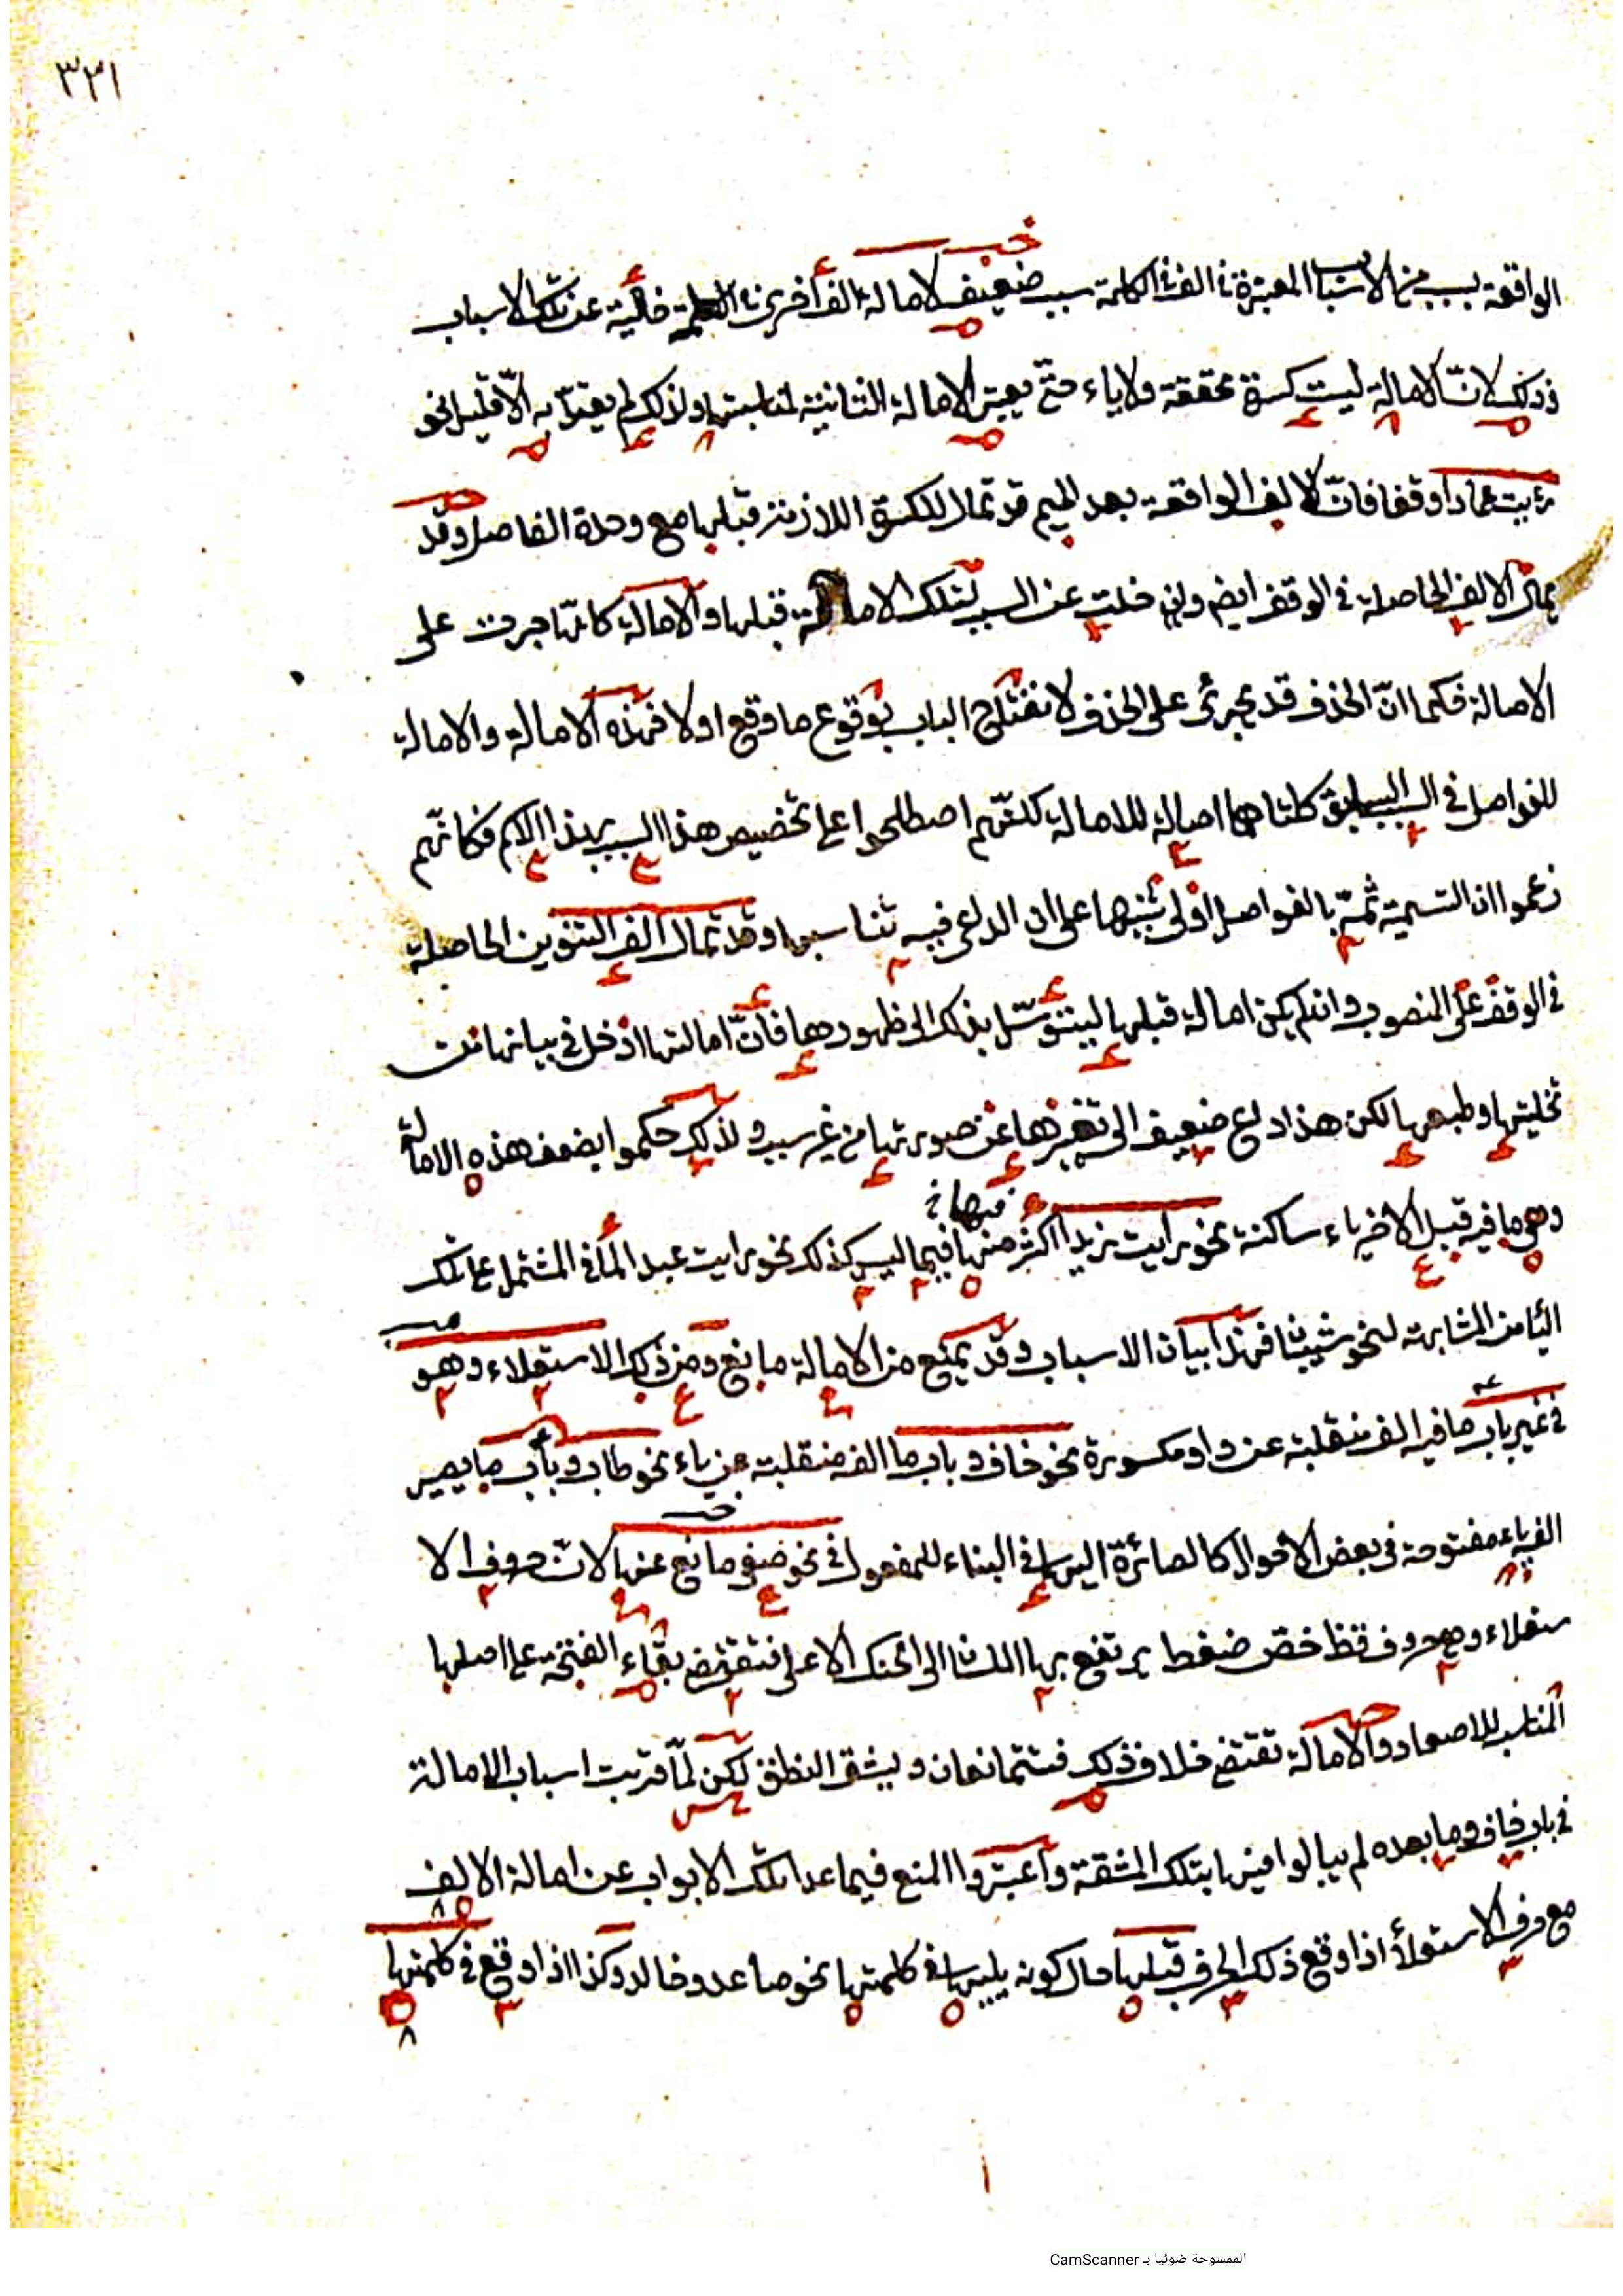 ٣٢١
الواقعة بسبب من الاسباب المعتبرة في الف في الكلمة سبب ضعيف لامالة الف أخرى في الكلمة خالية عن تلك الاسباب
وذلك لانّ الامالة ليست كسرة محققة ولا ياء حتّى يعتبر الامالة الثانية لمناسبتها ولذلك لم يعتدّ به الّا قليل نحو
رأيت عمادا وقفا فانّ الالف الواقعة بعد الميم قد تمال للكسرة اللازمة قبلها مع وحدة الفاصل وقد
يمال الالف الحاصلة في الوقف ايضا وان خلت عن السبب لتلك الامالة قبلها والامالة كانّها جرت على
الامالة فكما انّ الحذف قد يجرئ على الحذف لانفتاح الباب بوقوع ما وقع اولا فهذه الامالة والامالة
للفواصل في السبب السابق كلتاهما امالة للامالة لكنّهم اصطلحوا على تخصيص هذا السبب بهذا الاسم فكانّهم
زعموا ان التسمية ثمّة بالفواصل أولى تنبيها على ان الداعى فيه تناسبها وقد تمال الف التنوين الحاصلة
في الوقف على المنصوب وان لم يكن امالة قبلها ليتوسّل بذلك الى ظهورها فانّ امالتها ادخل في بيانها من
تخليتها وطبعها لكن هذا داع ضعيف الى تغييرها عن صورتها من غير سبب ولذلك حكموا بضعف هذه الامالة
وهي ما فيه قبل الاخير ياء ساكنة نحو رايت زيدا اكثر منها فيها فيما ليس كذلك نحو رايت عبدا المشتمل على تلك
المشابهة لنحو شيبنا فهذا بيان الاسباب وقد يمنع من الامالة مانع ومن ذلك الاستعلاء وهو
في غير باب ما فيه الف منقلبة عن واو مكسورة نحو خاف وباب ما الفه منقلبة عن ياء نحو طاب وباب ما يصير
الفه ياء مفتوحة في بعض الاحوال كالصائرة اليها في البناء للمفعول في نحو صفى مانع عنها لانّ حروف الا
ستعلاء وهي حروف قظ خصّ ضغط يرتفع بها اللسان الى الحنك الاعلى فتقتضى بقاء الفتحة على اصلها
المناسب للاصعاد والامالة تقتضى خلاف ذلك فتتمانعان ويشق النطق لكن لمّا قويت اسباب الامالة
في باب خاف وما بعده لم يبالوا فيها بتلك المشقة واعتبروا المنع فيما عدا تلك الابواب عن امالة الالف
مع حرف الاستعلاء اذا وقع ذلك الحرف قبلها حال كونه يليها في كلمتها نحو صاعد وخالد وكذا اذا وقع في كلمتها
الممسوحة ضوئيا بـ CamScanner